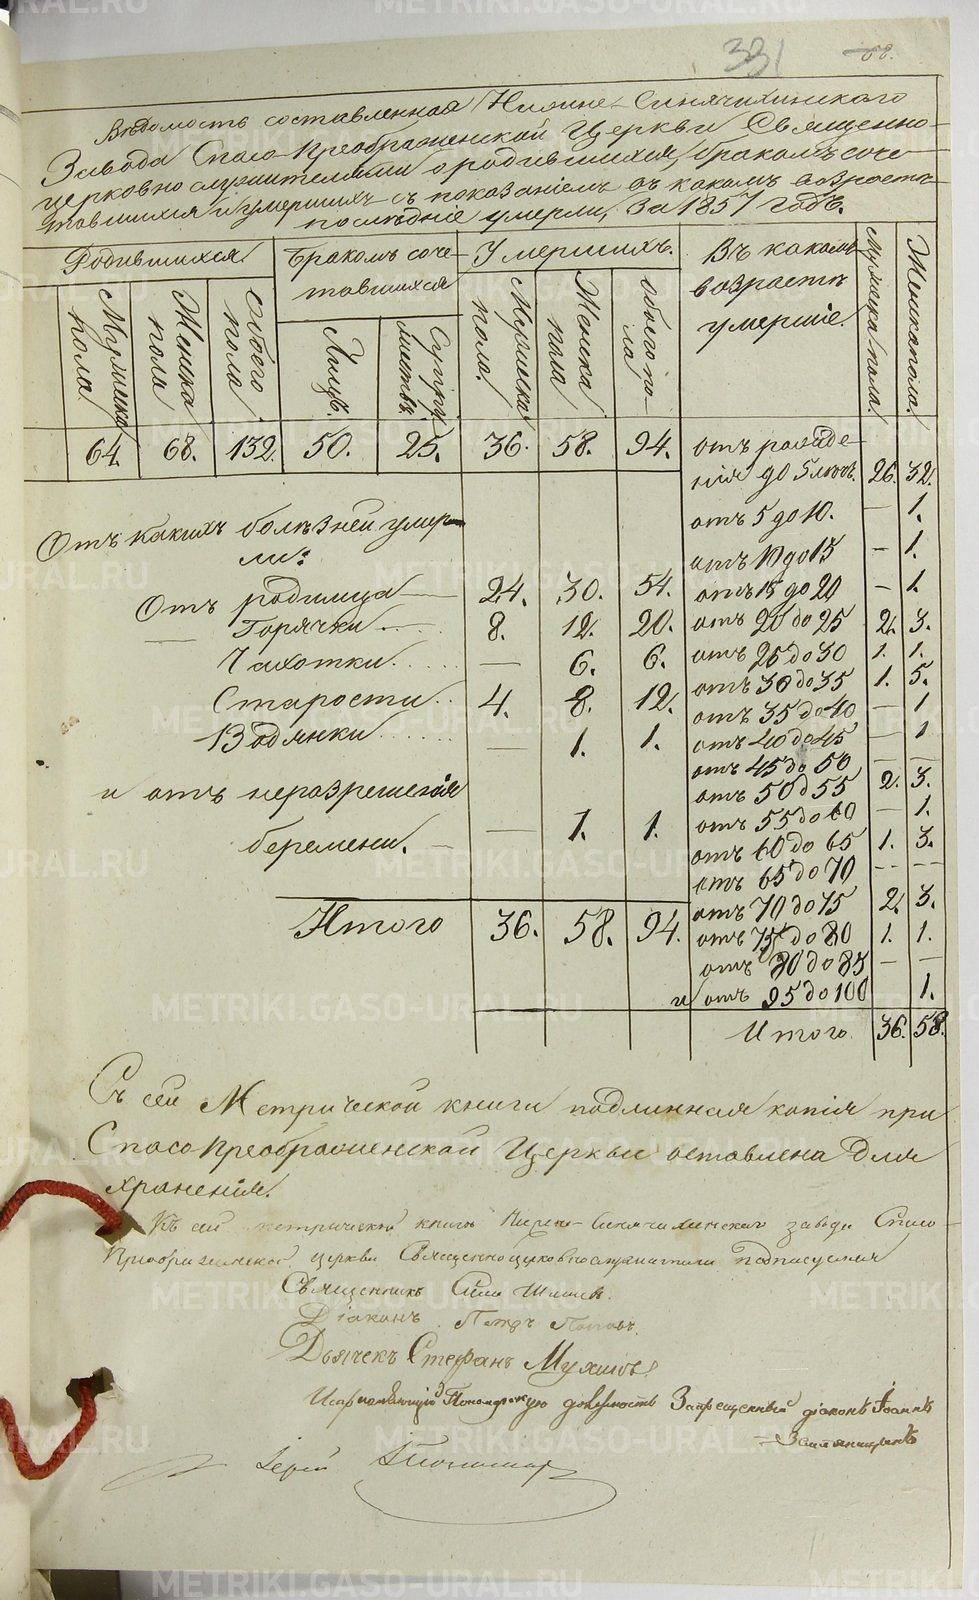 331
68.
Вѣдомость составленная Нижне-Синячихинскаго
Завода Спасо-Преображенской Церкви Священно-
церковно служителями о родившихся, бракомъ соче-
тавшихся и умершихъ съ показаніемъ въ какомъ возрастѣ
послѣдніе умерли, За 1857 годъ.
Родившихся
Бракомъ соче-
тавшихся
Умершихъ.
Въ какомъ
возрастѣ
умершіе.
Мужска пола
Женска пола.
Мужска пола
Женска пола
Обоего пола
Лицъ.
Супружествъ
Мужска пола.
Женска пола
обоего по-
ла
64. 68. 132. 50. 25. 36. 58. 94.
отъ рожде-
нія до 5 лѣтъ. 26. 32.
отъ 5 до 10. — 1.
отъ 10 до 15 — 1.
отъ 15 до 20 — 1.
отъ 20 до 25 2. 3.
отъ 25 до 30 1. 1.
отъ 30 до 35 1. 5.
отъ 35 до 40 — 1
отъ 40 до 45 — 1
отъ 45 до 50 — —
отъ 50 д 55 2. 3.
отъ 55 до 60 — 1.
отъ 60 до 65 1. 3.
отъ 65 до 70 — —
отъ 70 до 75 2. 3.
отъ 75 до 80 1. 1.
отъ 80 до 85 — —
и отъ 95 до 100 1.
Итого 36. 58.
Отъ какихъ болѣзней умер-
ли:
Отъ родимца 24. 30. 54.
— Горячки 8. 12. 20.
Чахотки — 6. 6.
Старости 4. 8. 12.
Водянки — 1. 1.
и отъ неразрешенія
беремени. — 1. 1.
Итого 36. 58. 94.
Съ сей Метрической книги подлинная копія при
Спасо Преображенской Церкви оставлена для
храненія.
Къ сей метрической книгѣ Нижне-Синячихинскаго завода Спасо-
Преображенской церкви Священноцерковнослужители подписуемся
Священникъ
Діаконъ Петръ Поповъ.
Дьячекъ Стефанъ
Исправляющій Пономарскую должность Запрещенный діаконъ Іоаннъ
Іерей
METRIKI.GASO-URAL.RU